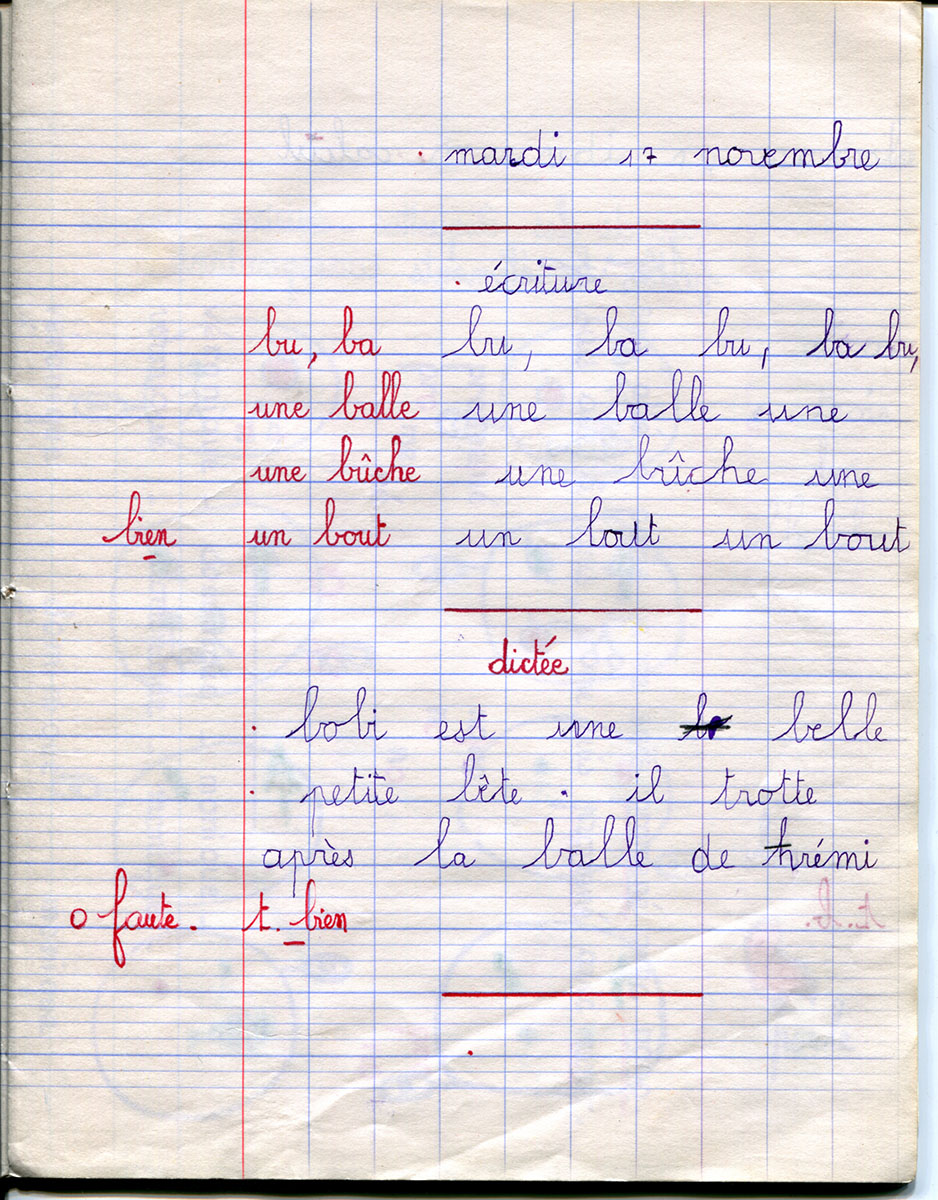 mardi 17 novembre
écriture
bu, ba bu, ba bu, ba bu,
une balle une balle une
une bûche une bûche une
bien un bout un bout un bout
dictée
bobi est une belle
petite bête. il trotte
après la balle de rémi
0 faute. t. bien